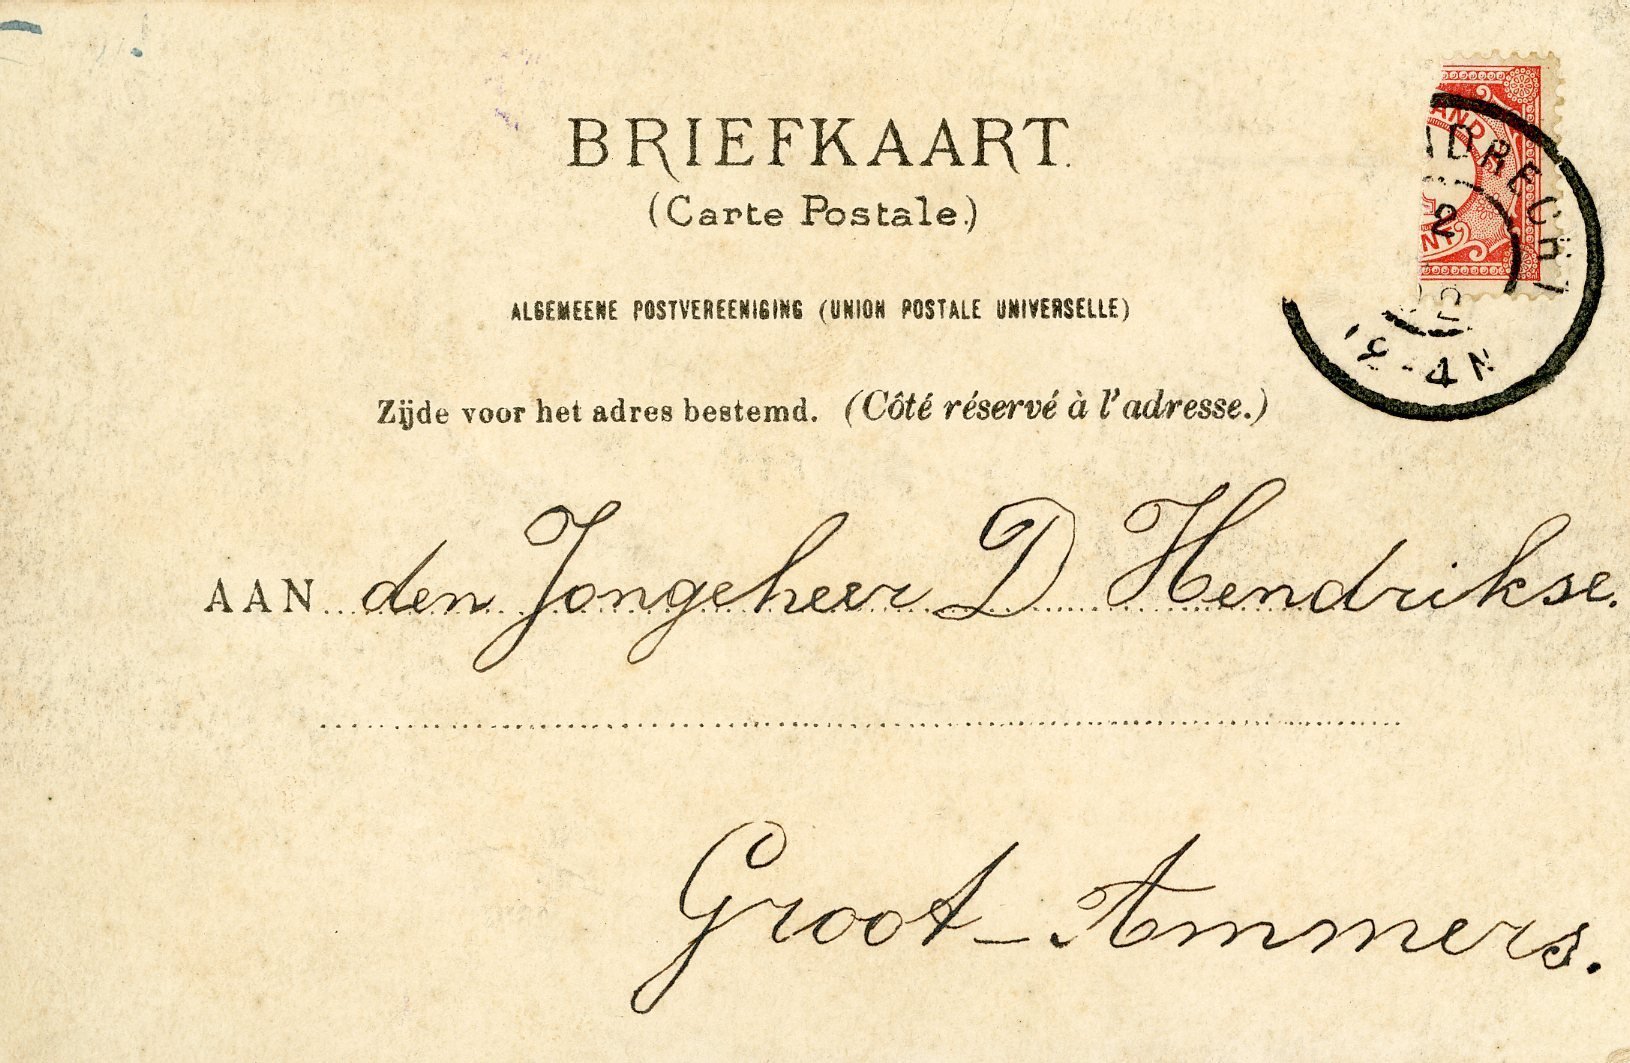 BRIEFKAART.
(Carte Postale.)
ALGEMEENE POSTVEREENIGING (UNION POSTALE UNIVERSELLE)
Zijde voor het adres bestemd. (Côté réservé à l'adresse.)
AAN den Jongeheer D Hendrikse.
Groot-Ammers.